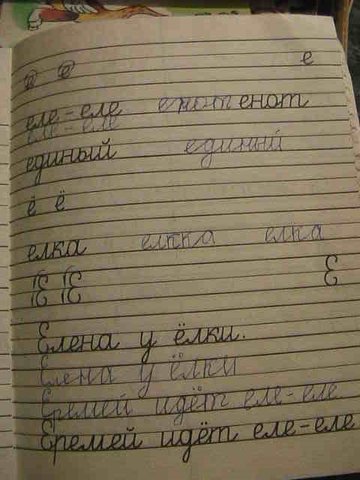 е е е
еле-еле енот енот
еле-еле
единый единый
ё ё
елка елка елка
Е Е Е
Елена у ёлки.
Елена у ёлки
Еремей идёт еле-еле
Еремей идёт еле-еле